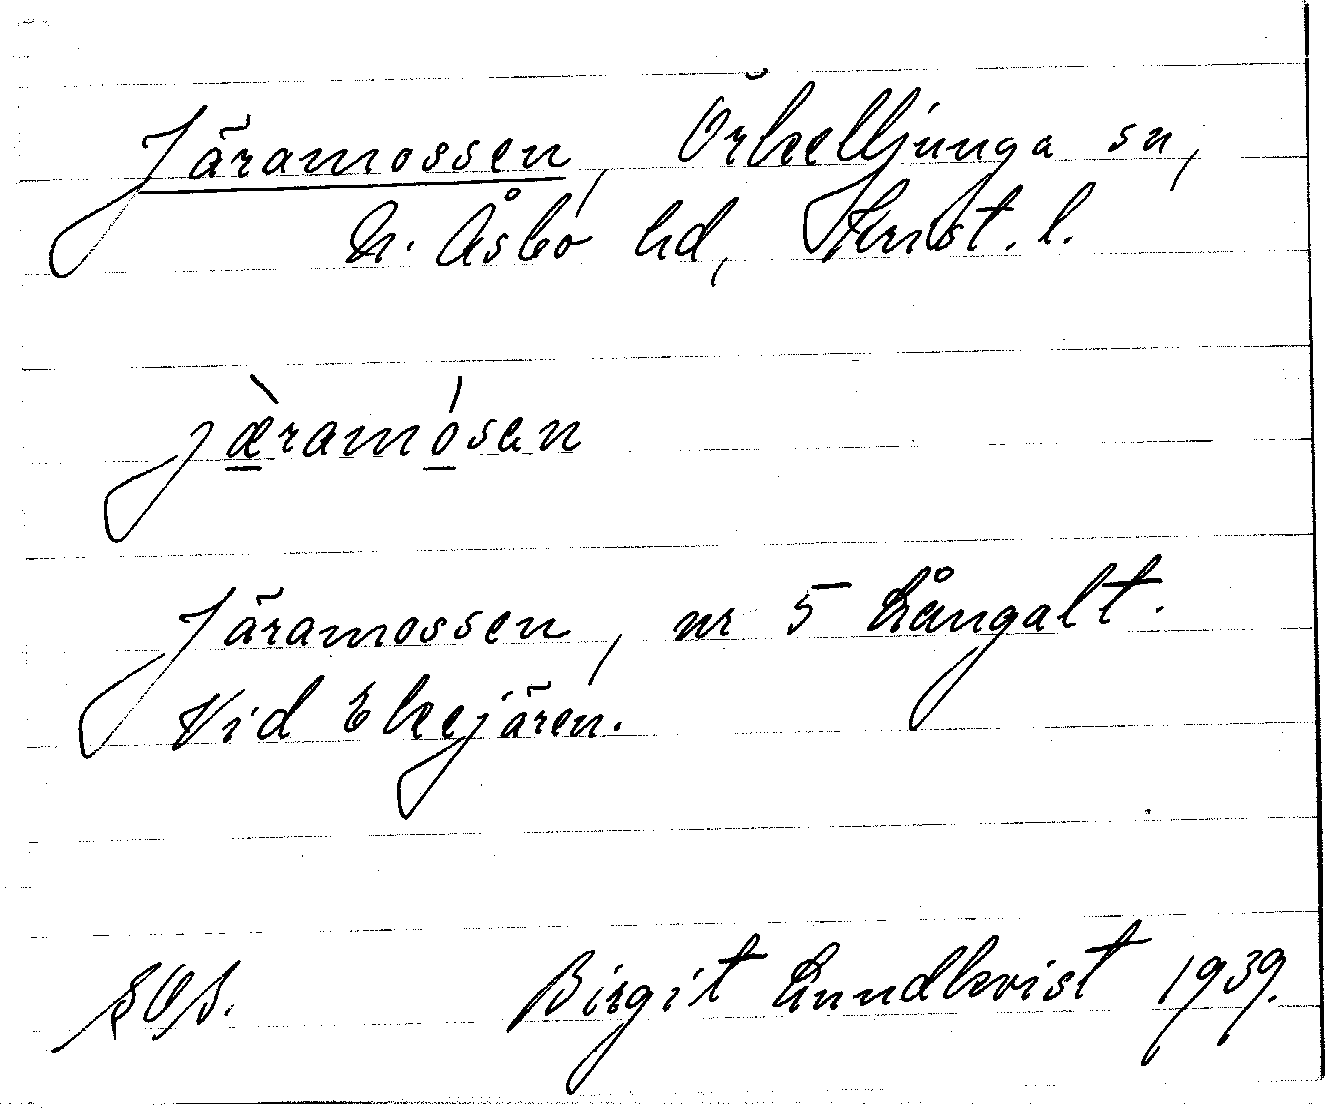 Järamossen, Örkelljunga sn,
N. Åsbo hd, Krist. l.
jæ̀ramósen
Järamossen, nr 5 Långalt.
Vid Ekejären.
Birgit Lundkvist 1939.